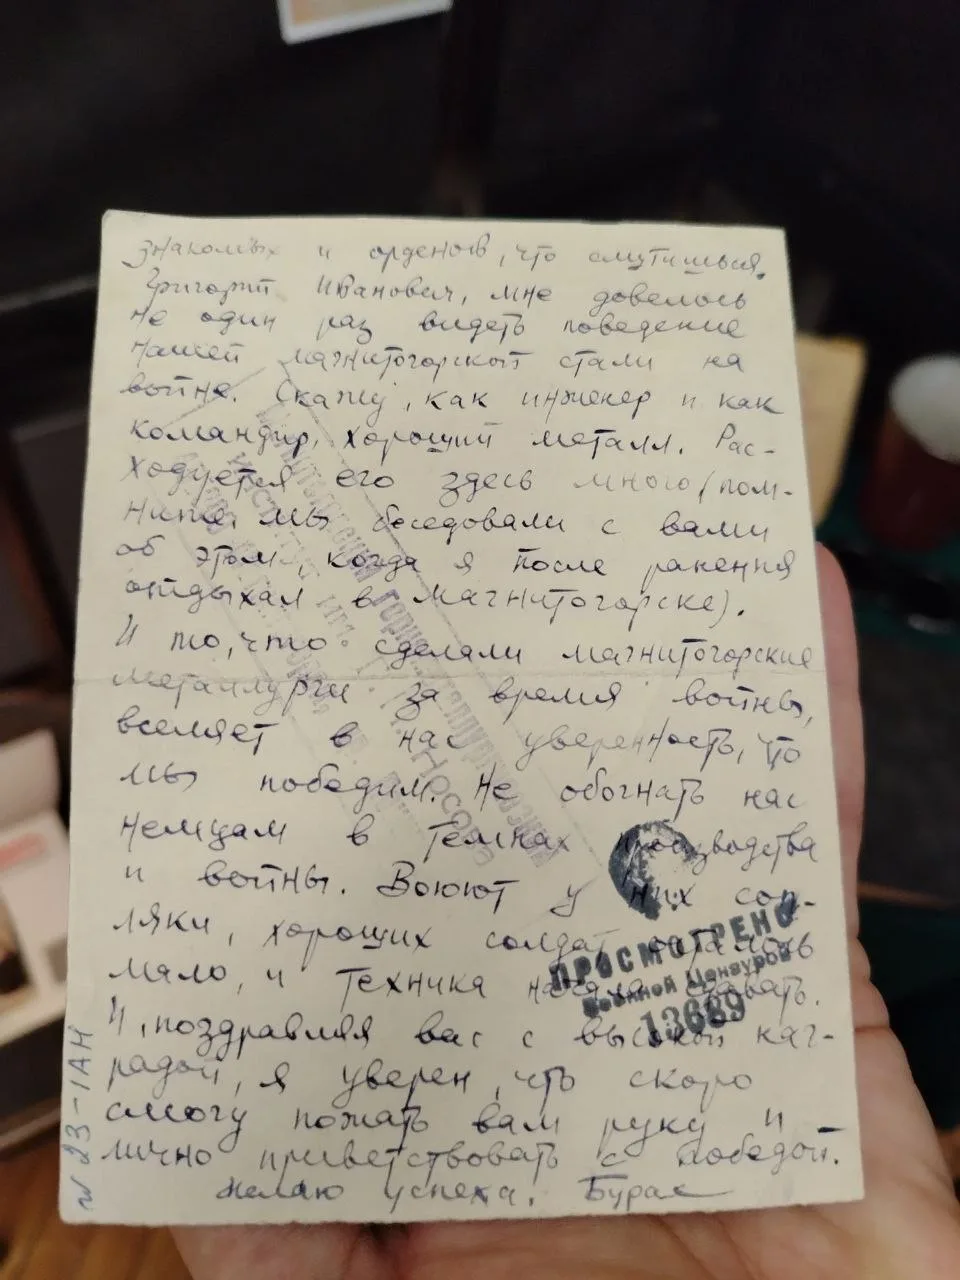 знакомых и орденов, что смутишься.
Григорий Иванович, мне довелось
не один раз видеть поведение
нашей магнитогорской стали на
войне. Скажу, как инженер и как
командир, хороший металл. Рас-
ходуется его здесь много (пом-
ните, мы беседовали с вами
об этом, когда я после ранения
отдыхал в Магнитогорске).
И то, что сделали магнитогорские
металлурги за время войны,
вселяет в нас уверенность, что
мы победим. Не обогнать нас
немцам в темпах производства
и войны. Воюют у них соп-
ляки, хороших солдат осталось
мало, и техника начала сдавать.
И, поздравляя вас с высокой наг-
радой, я уверен, что скоро
смогу пожать вам руку и
лично приветствовать с победой.
Желаю успеха. Бурас
Магнитогорский горно-металлургический
институт им. Г. И. НОСОВА
ПРОСМОТРЕНО
Военной Цензурой
13689
N 23-1АН